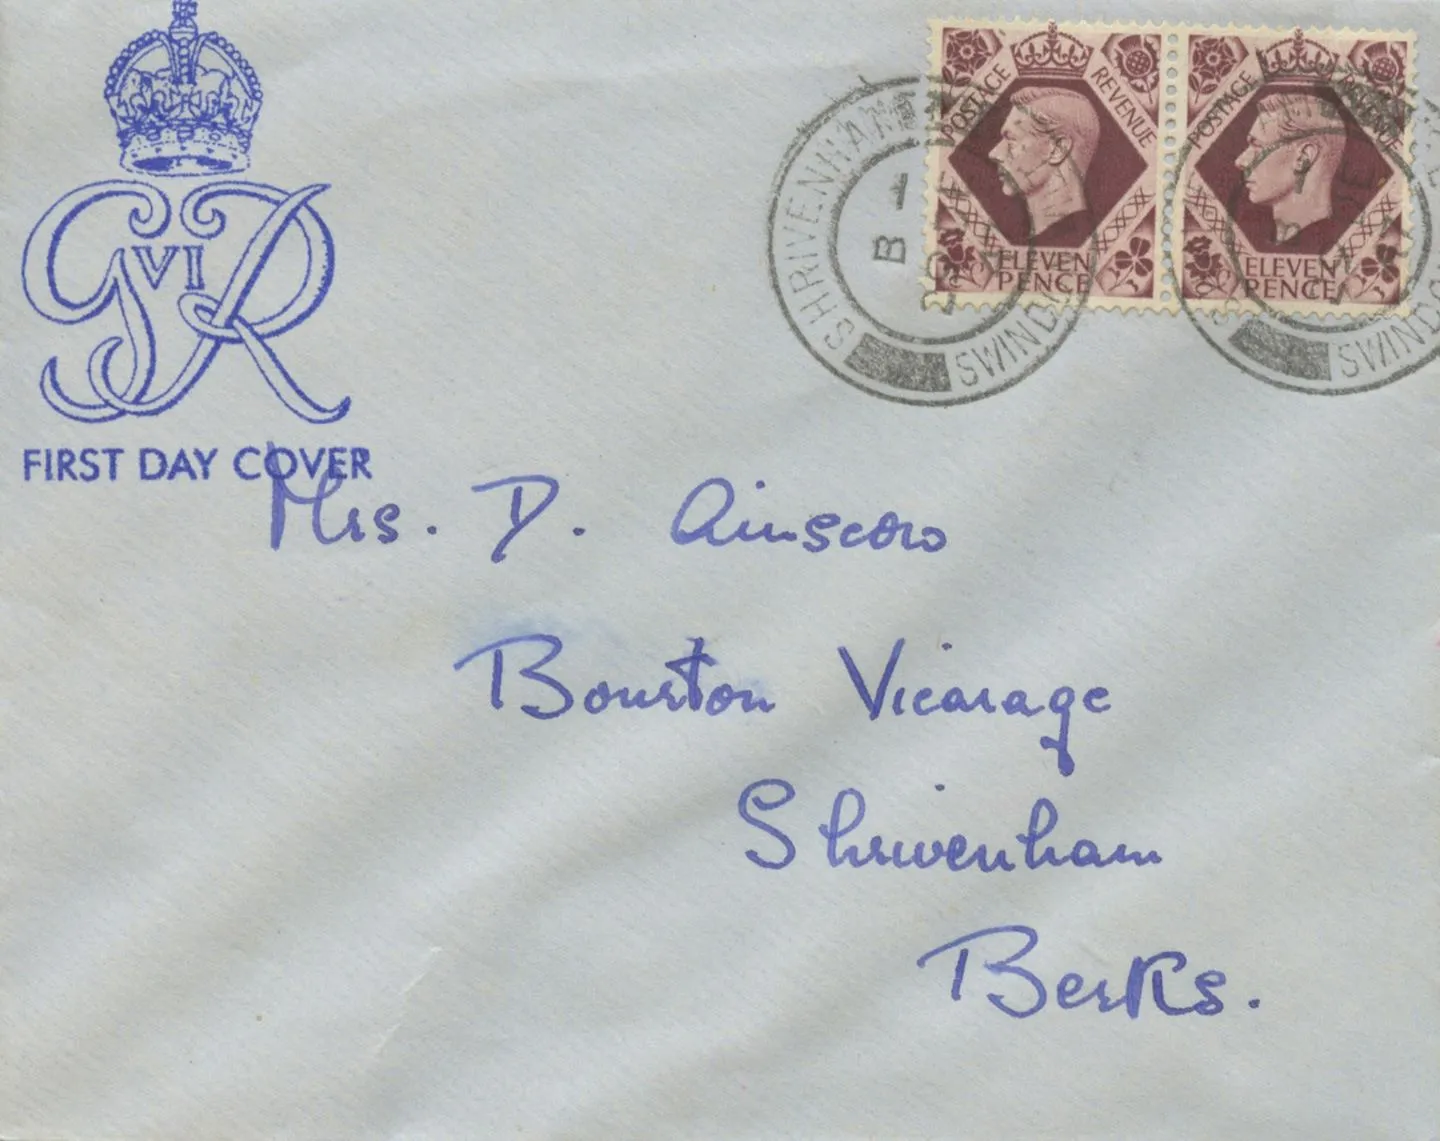 VI
GR
FIRST DAY COVER
POSTAGE REVENUE
ELEVEN
PENCE
POSTAGE REVENUE
ELEVEN
PENCE
SHRIVENHAM
SWINDON
B
SWINDON
Mrs. D. Ainscow
Bourton Vicarage
Shrivenham
Berks.